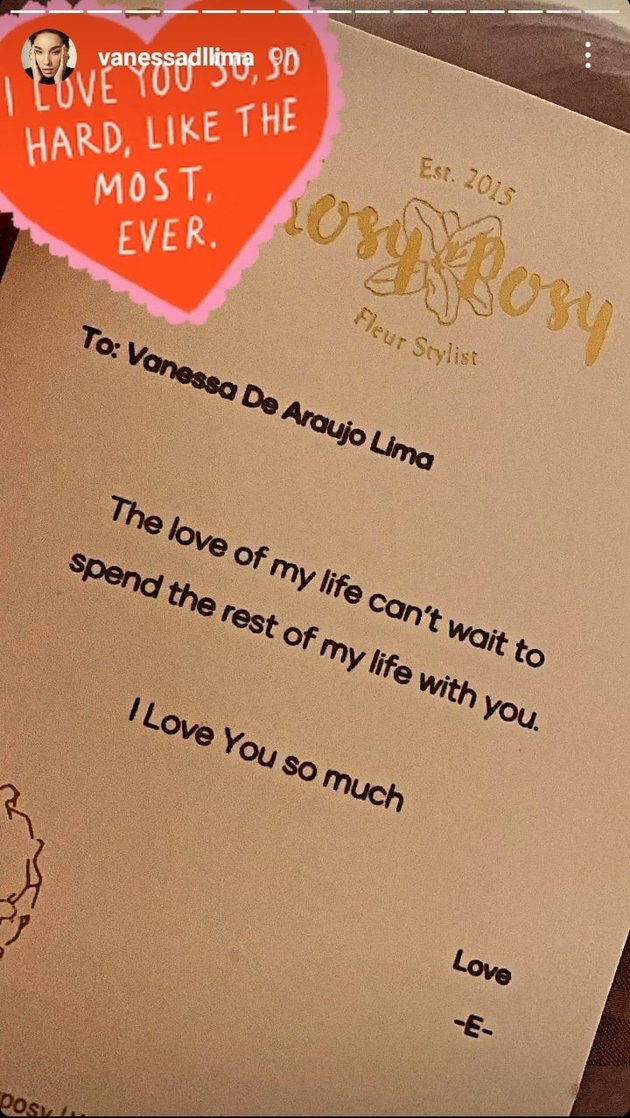 vanessadllima 9h
I LOVE YOU SO, SO
HARD, LIKE THE
MOST,
EVER.
Est. 2015
Rosy Posy
Fleur Stylist
To: Vanessa De Araujo Lima
The love of my life can't wait to
spend the rest of my life with you.
I Love You so much
Love
-E-